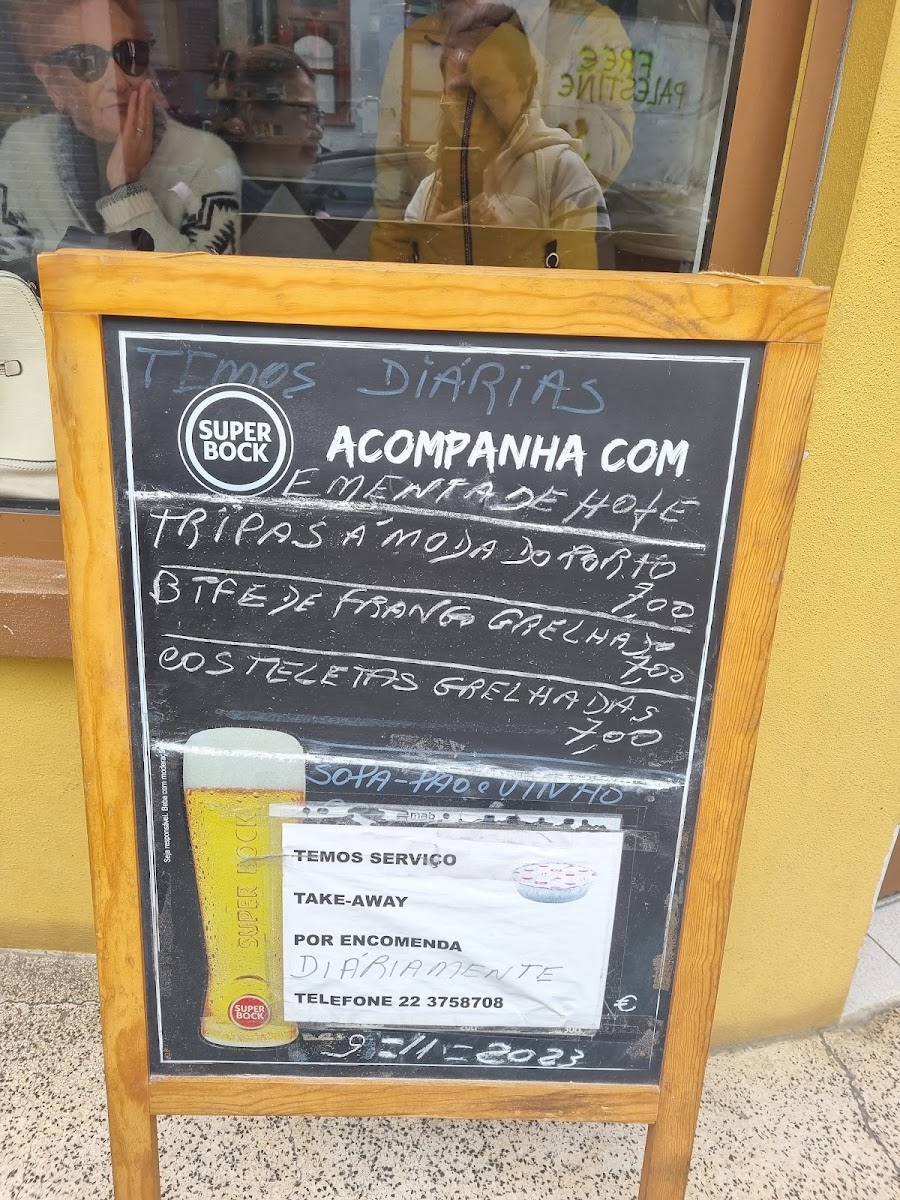 FREE
PALESTINE
TEMOS DIÁRIAS
SUPER
BOCK
ACOMPANHA COM
EMENTA DE HOJE
TRIPAS Á MODA DO PORTO
7,00
BIFE DE FRANGO GRELHADO
7,00
COSTELETAS GRELHADAS
7,00
SOPA-PÃO e VINHO
Seja responsável. Beba com moderação
SUPER BOCK
SUPER
BOCK
TEMOS SERVIÇO
TAKE-AWAY
POR ENCOMENDA
DIÁRIAMENTE
TELEFONE 22 3758708
€
9-11-2023